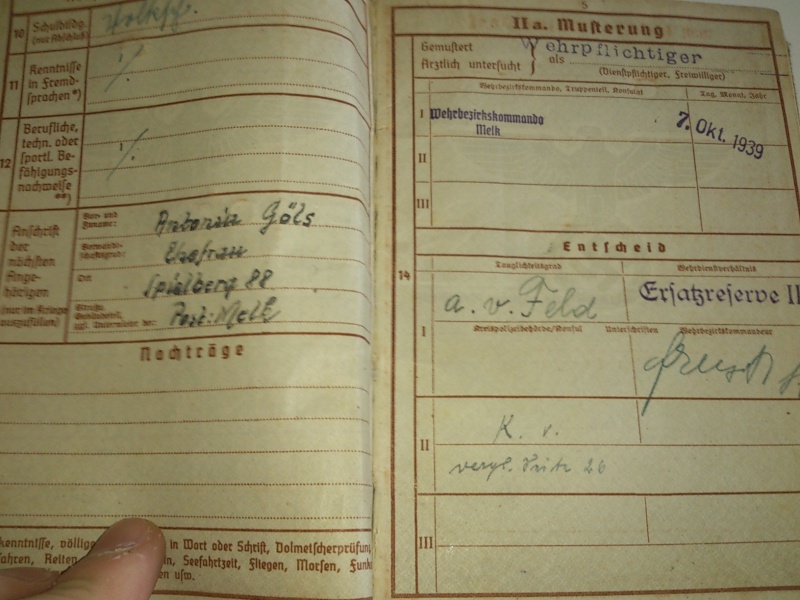 10 Schulbildg. (nur Abschluß)
11 Kenntnisse in Fremdsprachen*)
./.
12 Berufliche, techn. oder sportl. Befähigungsnachweise **)
./.
Anschrift der nächsten Angehörigen (nur im Kriege auszufüllen)
Vor- und Zuname: Antonia Göls
Verwandtschaftsgrad: Ehefrau
Ort: Spielberg 88
Straße, Post: Melk
Nachträge
kenntnisse, völlige in Wort oder Schrift, Dolmetscherprüfung
ahren, Reiten Seefahrtzeit, Fliegen, Morsen, Funk
usw.
5
IIa. Musterung
Gemustert
Ärztlich untersucht } als Wehrpflichtiger
(Dienstpflichtiger, Freiwilliger)
Wehrbezirkskommando, Truppenteil, Konsulat Tag, Monat, Jahr
I Wehrbezirkskommando Melk 7. Okt. 1939
II
III
Entscheid
14
Tauglichkeitsgrad Wehrdienstverhältnis
I a. v. Feld Ersatzreserve II
Kreispolizeibehörde/Konsul Unterschriften Wehrbezirkskommandeur
II K. v.
vergl. Seite 26
III